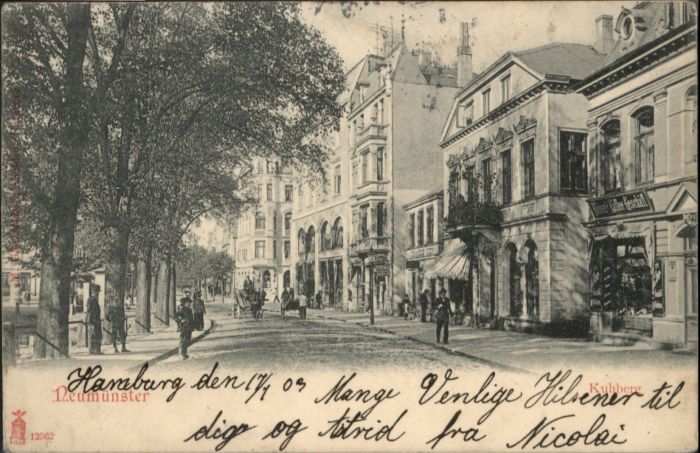 Kaffee-Geschäft
Hamburg den 17/1 03 Mange Venlige Hilsener til
Neumünster
Kuhberg
dig og Astrid fra Nicolai
12362